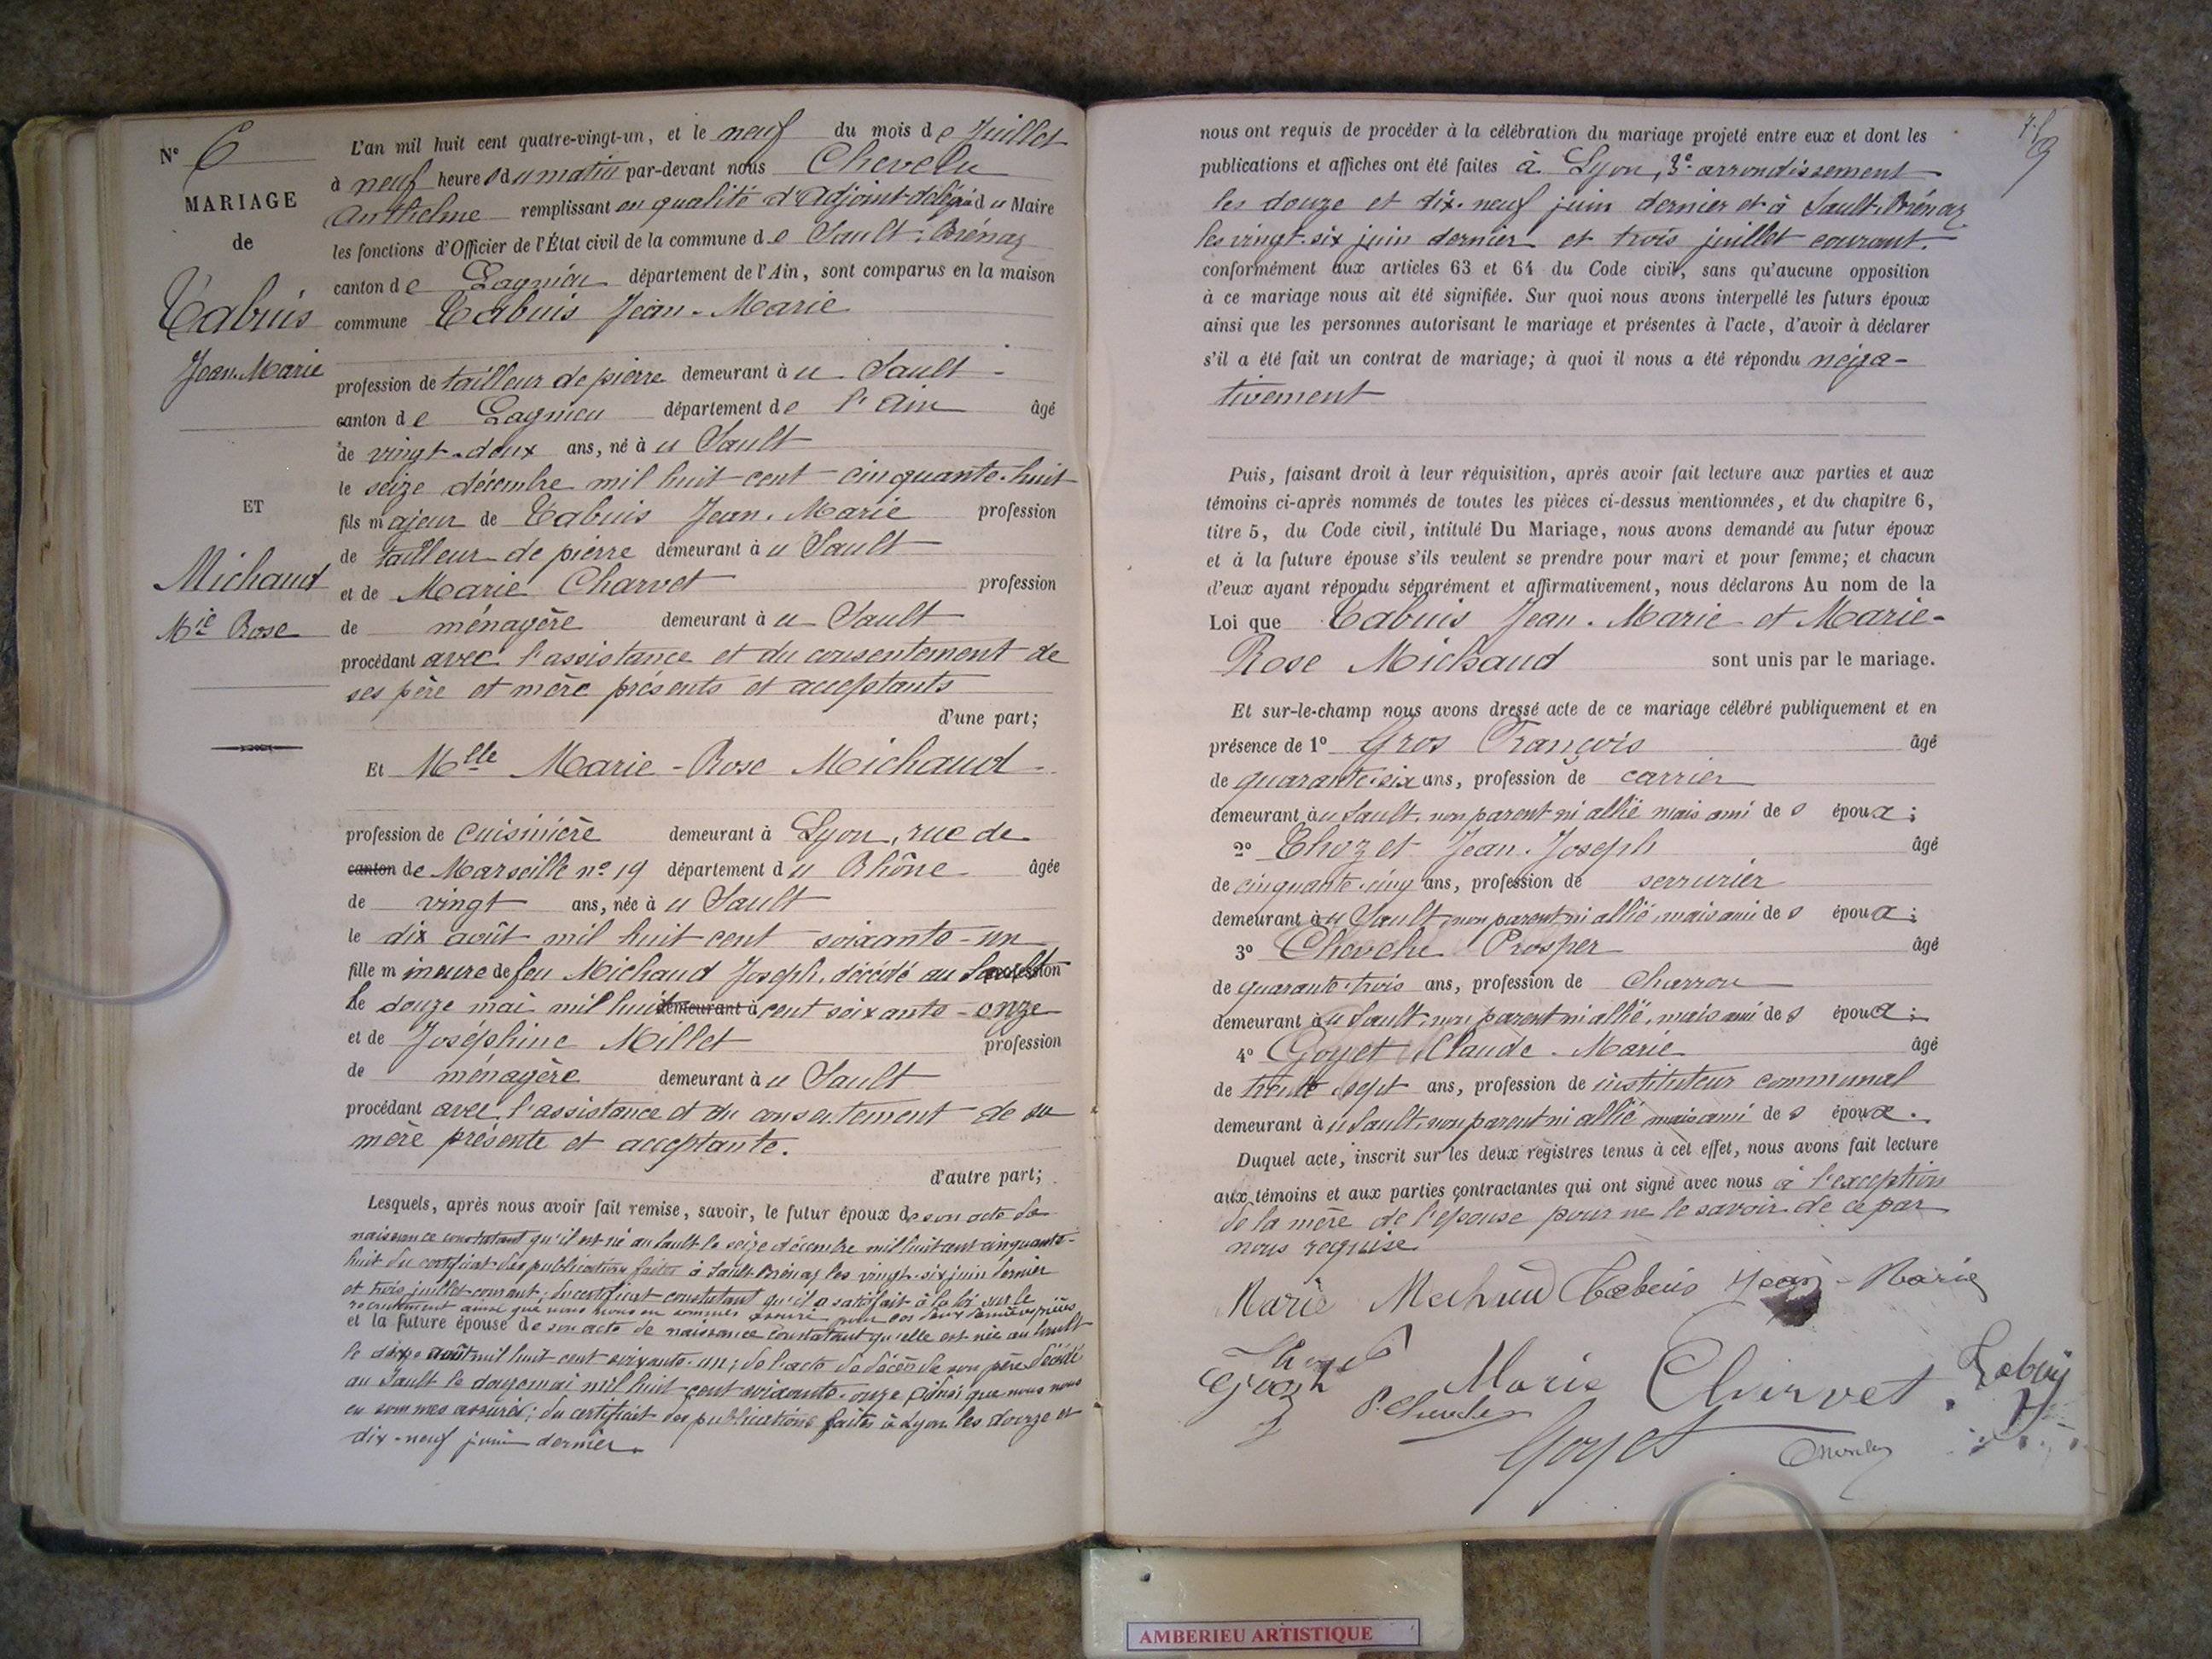 N° 6
MARIAGE
de
Tabuis
Jean-Marie
ET
Michaud
Mie Rose
L'an mil huit cent quatre-vingt-un, et le neuf du mois de Juillet
à neuf heures du matin par-devant nous Chevelu
Anthelme remplissant en qualité d'Adjoint-délégué du Maire
les fonctions d'Officier de l'État civil de la commune de Sault-Brénaz
canton de Lagnieu département de l'Ain, sont comparus en la maison
commune Tabuis Jean-Marie
profession de tailleur de pierre demeurant à u Sault
canton de Lagnieu département de l'Ain âgé
de vingt-deux ans, né à u Sault
le seize décembre mil huit cent cinquante-huit
fils majeur de Tabuis Jean-Marie profession
de tailleur de pierre demeurant à u Sault
et de Marie Charvet profession
de ménagère demeurant à u Sault
procédant avec l'assistance et du consentement de
ses père et mère présents et acceptants
d'une part;
Et Mlle Marie-Rose Michaud
profession de cuisinière demeurant à Lyon, rue de
canton de Marseille n° 19 département du Rhône âgée
de vingt ans, née à u Sault
le dix août mil huit cent soixante-un
fille mineure de feu Michaud Joseph, décédé au Sault profession
le douze mai mil huit demeurant à cent soixante-onze
et de Joséphine Millet profession
de ménagère demeurant à u Sault
procédant avec l'assistance et du consentement de sa
mère présente et acceptante.
d'autre part;
Lesquels, après nous avoir fait remise, savoir, le futur époux de son acte de
naissance constatant qu'il est né au Sault le seize décembre mil huit cent cinquante-
huit du certificat des publications faites à Sault-Brénaz les vingt-six juin dernier
et trois juillet courant; du certificat constatant qu'il a satisfait à la loi sur le
recrutement ainsi que nous nous en sommes assuré pour ces deux dernières pièces
et la future épouse de son acte de naissance constatant qu'elle est née au Sault
le dix août mil huit cent soixante-un; de l'acte de décès de son père décédé
au Sault le douze mai mil huit cent soixante-onze ainsi que nous nous
en sommes assurés; du certificat des publications faites à Lyon les douze et
dix-neuf juin dernier.
nous ont requis de procéder à la célébration du mariage projeté entre eux et dont les
publications et affiches ont été faites à Lyon, 3e arrondissement
les douze et dix-neuf juin dernier et à Sault-Brénaz
les vingt-six juin dernier et trois juillet courant.
conformément aux articles 63 et 64 du Code civil, sans qu'aucune opposition
à ce mariage nous ait été signifiée. Sur quoi nous avons interpellé les futurs époux
ainsi que les personnes autorisant le mariage et présentes à l'acte, d'avoir à déclarer
s'il a été fait un contrat de mariage; à quoi il nous a été répondu néga-
tivement
Puis, faisant droit à leur réquisition, après avoir fait lecture aux parties et aux
témoins ci-après nommés de toutes les pièces ci-dessus mentionnées, et du chapitre 6,
titre 5, du Code civil, intitulé Du Mariage, nous avons demandé au futur époux
et à la future épouse s'ils veulent se prendre pour mari et pour femme; et chacun
d'eux ayant répondu séparément et affirmativement, nous déclarons Au nom de la
Loi que Tabuis Jean-Marie et Marie-
Rose Michaud sont unis par le mariage.
Et sur-le-champ nous avons dressé acte de ce mariage célébré publiquement et en
présence de 1° Gros François âgé
de quarante-six ans, profession de carrier
demeurant à u Sault, non parent ni allié mais ami des époux;
2° Thozet Jean-Joseph âgé
de cinquante-cinq ans, profession de serrurier
demeurant à u Sault, non parent ni allié, mais ami des époux;
3° Prosper âgé
de quarante-trois ans, profession de Charron
demeurant à u Sault, non parent ni allié, mais ami des époux;
4° Goyet Claude-Marie âgé
de trente-sept ans, profession de instituteur communal
demeurant à u Sault, non parent ni allié mais ami des époux.
Duquel acte, inscrit sur les deux registres tenus à cet effet, nous avons fait lecture
aux témoins et aux parties contractantes qui ont signé avec nous à l'exception
de la mère de l'épouse pour ne le savoir de ce par
nous requise
Marie Tabuis Jean-Marie
Marie Charvet
Goyet
AMBERIEU ARTISTIQUE